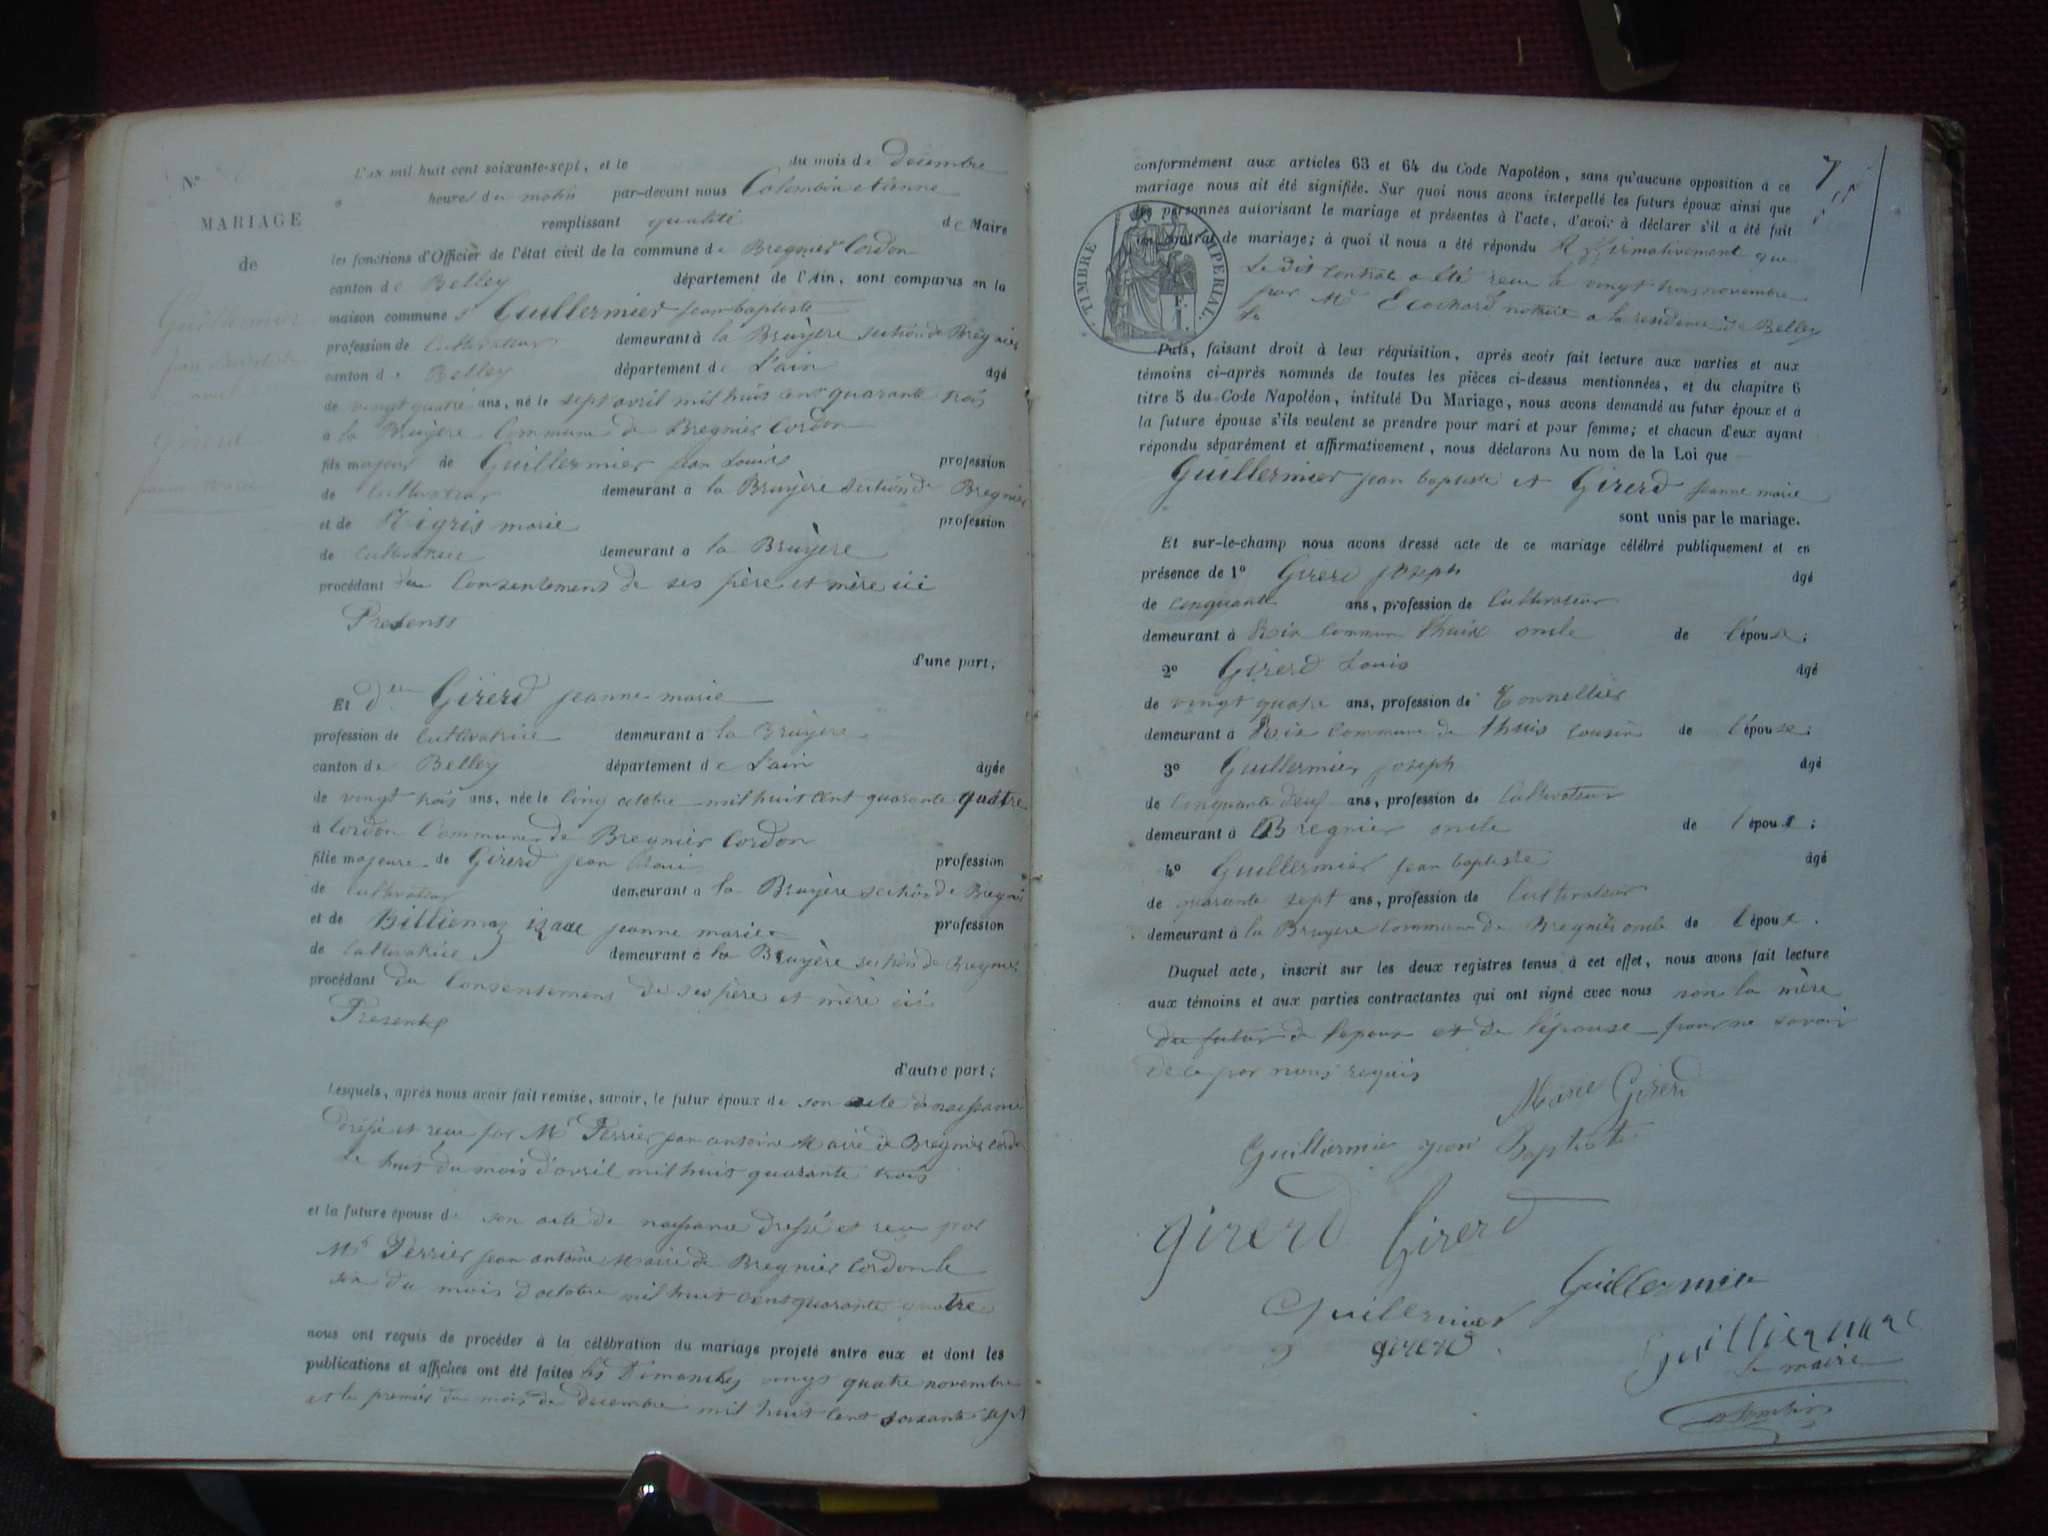 N°
MARIAGE
de
Guillermier
jean baptiste
avec
Girerd
jeanne marie
L'AN mil huit cent soixante-sept, et le du mois de Décembre
à heures du matin par-devant nous Colombin etienne
remplissant qualité de Maire
les fonctions d'Officier de l'état civil de la commune de Bregnier Cordon
canton de Belley département de l'Ain, sont comparus en la
maison commune sr Guillermier jean baptiste
profession de Cultivateur demeurant à la Bruyère section de Bregnier
canton de Belley département de L'ain âgé
de vingt quatre ans, né le sept avril mil huit cent quarante trois
à la Bruyère Commune de Bregnier Cordon
fils majeur de Guillermier jean Louis profession
de Cultivateur demeurant à la Bruyère section de Bregnier
et de Nigris marie profession
de Cultivatrice demeurant à la Bruyère
procédant du Consentement de ses père et mère ici
Presents
d'une part,
Et dlle Girerd jeanne marie
profession de Cultivatrice demeurant à la Bruyère
canton de Belley département de L'ain âgée
de vingt trois ans, née le Cinq octobre mil huit cent quarante quatre
à Cordon Commune de Bregnier Cordon
fille majeure de Girerd jean Louis profession
de Cultivateur demeurant à la Bruyère section de Bregnier
et de Billiemaz izaac jeanne marie profession
de Cultivatrice demeurant à la Bruyère section de Bregnier
procédant du Consentement de ses père et mère ici
Presents
d'autre part;
Lesquels, après nous avoir fait remise, savoir, le futur époux de son acte de naissance
Dressé et reçu par Mr Perrier jean antoine Maire de Bregnier Cordon
le huit du mois d'avril mil huit quarante trois
et la future épouse de son acte de naissance Dressé et reçu par
Mr Perrier jean antoine Maire de Bregnier Cordon le
six du mois d'octobre mil huit cent quarante quatre
nous ont requis de procéder à la célébration du mariage projeté entre eux et dont les
publications et affiches ont été faites les Dimanches vingt quatre novembre
et le premier du mois de Decembre mil huit cent soixante sept
7
conformément aux articles 63 et 64 du Code Napoléon, sans qu'aucune opposition à ce
mariage nous ait été signifiée. Sur quoi nous avons interpellé les futurs époux ainsi que
les personnes autorisant le mariage et présentes à l'acte, d'avoir à déclarer s'il a été fait
un contrat de mariage; à quoi il nous a été répondu Affirmativement que
Le dit Contrat a été reçu le vingt trois novembre
par Mr Ecochard notaire a la residence de Belley
TIMBRE IMPERIAL.
Puis, faisant droit à leur réquisition, après avoir fait lecture aux parties et aux
témoins ci-après nommés de toutes les pièces ci-dessus mentionnées, et du chapitre 6
titre 5 du Code Napoléon, intitulé Du Mariage, nous avons demandé au futur époux et à
la future épouse s'ils veulent se prendre pour mari et pour femme; et chacun d'eux ayant
répondu séparément et affirmativement, nous déclarons Au nom de la Loi que
Guillermier jean baptiste et Girerd jeanne marie
sont unis par le mariage.
Et sur-le-champ nous avons dressé acte de ce mariage célébré publiquement et en
présence de 1° Girerd joseph âgé
de Cinquante ans, profession de Cultivateur
demeurant à Rix Commune Thuix oncle de l'épouse;
2° Girerd Louis âgé
de vingt quatre ans, profession de Tonnellier
demeurant à Rix Commune de thuis Cousin de l'épouse;
3° Guillermier joseph âgé
de Cinquante neuf ans, profession de Cultivateur
demeurant à Bregnier oncle de l'époux;
4° Guillermier jean baptiste âgé
de quarante sept ans, profession de Cultivateur
demeurant à la Bruyere Commune de Bregnier oncle de l'époux.
Duquel acte, inscrit sur les deux registres tenus à cet effet, nous avons fait lecture
aux témoins et aux parties contractantes qui ont signé avec nous non la mère
du futur de lepoux et de l'épouse pour ne savoir
de ce par nous requis
Marie Girerd
Guillermie jean Baptiste
girerd Girerd
Guillermier Guillermier
girerd
le maire